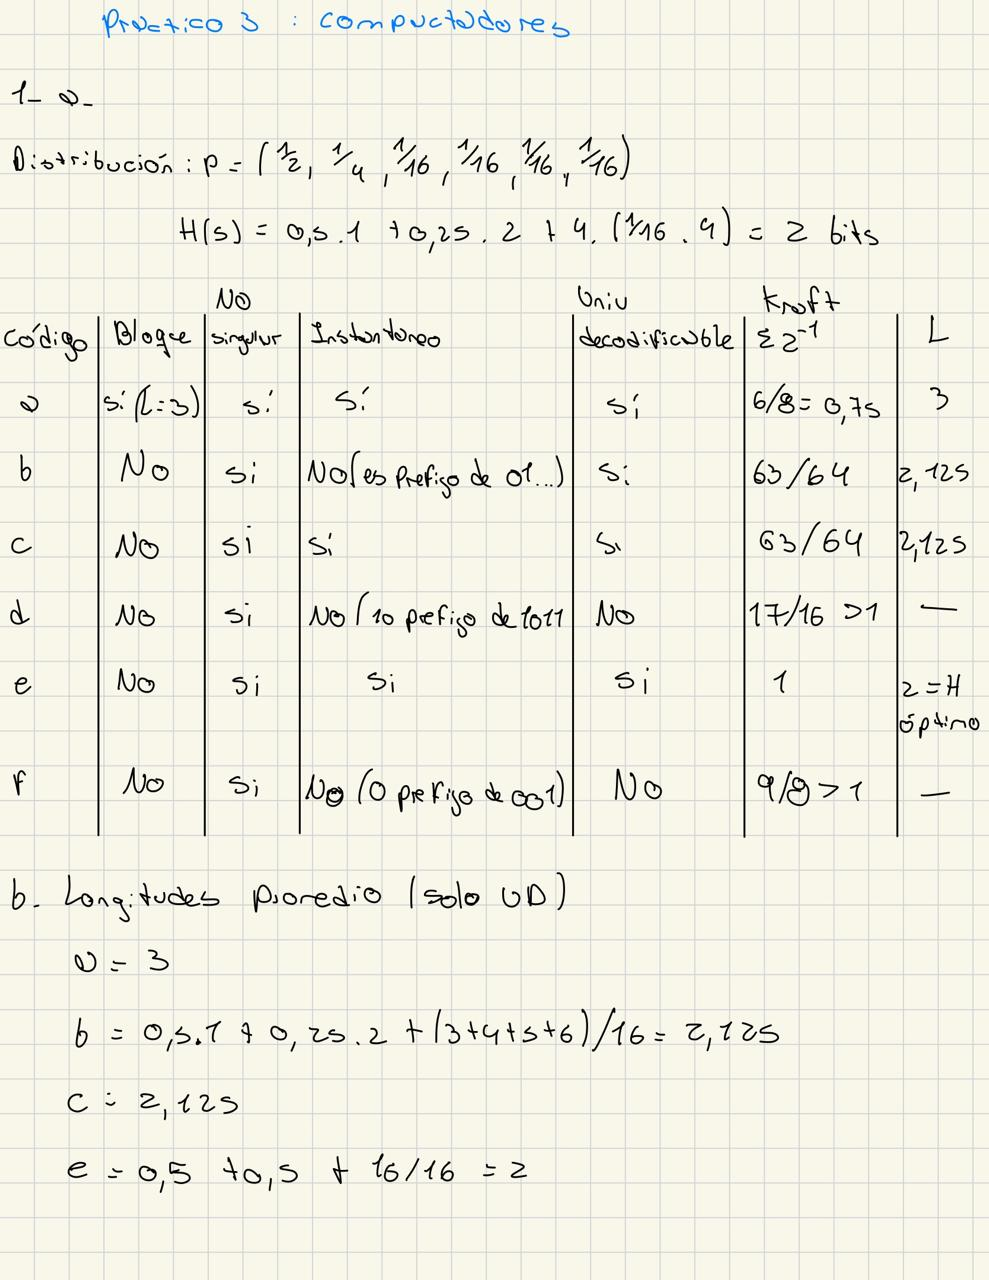 Práctico 3 : compuctadores
1_ a_
Distribución : p = (1/2, 1/4, 1/16, 1/16, 1/16, 1/16)
H(s) = 0,5.1 + 0,25.2 + 4.(1/16.4) = 2 bits
Código | Bloque | No singular | Instantaneo | Univ decodificable | Kraft Σ2^-1 | L
a | sí (L=3) | sí | sí | sí | 6/8 = 0,75 | 3
b | No | si | No (es prefijo de 01...) | si | 63/64 | 2,125
c | No | si | sí | si | 63/64 | 2,125
d | No | si | No (10 prefijo de 1011 | No | 17/16 >1 | —
e | No | si | si | si | 1 | 2 = H óptimo
f | No | si | No (0 prefijo de 001) | No | 9/8 > 1 | —
b. Longitudes promedio (solo UD)
a = 3
b = 0,5.1 + 0,25.2 + (3+4+5+6)/16 = 2,125
c = 2,125
e = 0,5 + 0,5 + 16/16 = 2